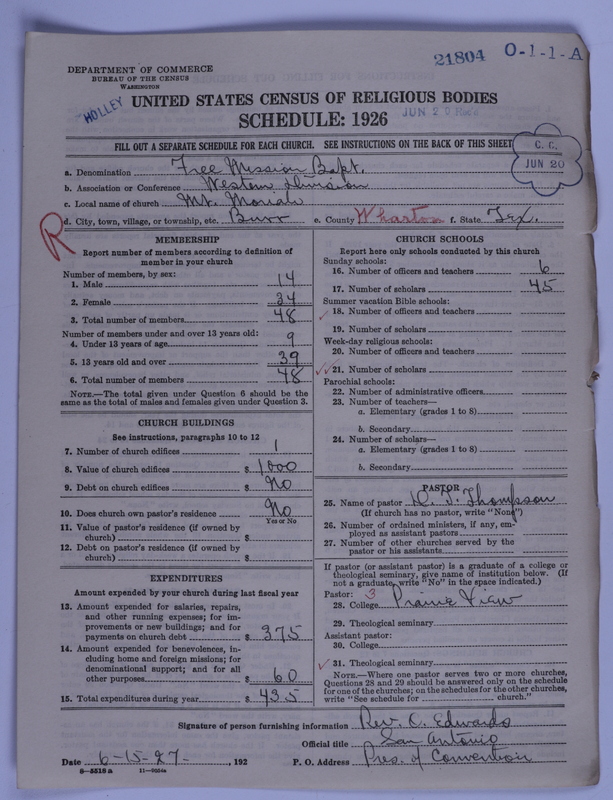 21804 0-1-1-A
DEPARTMENT OF COMMERCE
BUREAU OF THE CENSUS
WASHINGTON
HOLLEY
UNITED STATES CENSUS OF RELIGIOUS BODIES
SCHEDULE: 1926
JUN 20
FILL OUT A SEPARATE SCHEDULE FOR EACH CHURCH. SEE INSTRUCTIONS ON THE BACK OF THIS SHEET
C. C.
JUN 20
a. Denomination Free Mission Bapt.
b. Association or Conference Western Division
c. Local name of church Mt. Moriah
d. City, town, village, or township, etc. Burr e. County Wharton f. State Tex.
R
MEMBERSHIP
Report number of members according to definition of
member in your church
Number of members, by sex:
1. Male 14
2. Female 34
3. Total number of members 48
Number of members under and over 13 years old:
4. Under 13 years of age 9
5. 13 years old and over 39
6. Total number of members 48
NOTE.—The total given under Question 6 should be the
same as the total of males and females given under Question 3.
CHURCH BUILDINGS
See instructions, paragraphs 10 to 12
7. Number of church edifices 1
8. Value of church edifices $ 1000
9. Debt on church edifices $ No
10. Does church own pastor's residence No
Yes or No
11. Value of pastor's residence (if owned by
church) $
12. Debt on pastor's residence (if owned by
church) $
EXPENDITURES
Amount expended by your church during last fiscal year
13. Amount expended for salaries, repairs,
and other running expenses; for im-
provements or new buildings; and for
payments on church debt $ 375
14. Amount expended for benevolences, in-
cluding home and foreign missions; for
denominational support; and for all
other purposes $ 60
15. Total expenditures during year $ 435
CHURCH SCHOOLS
Report here only schools conducted by this church
Sunday schools:
16. Number of officers and teachers 6
17. Number of scholars 45
Summer vacation Bible schools:
18. Number of officers and teachers
19. Number of scholars
Week-day religious schools:
20. Number of officers and teachers
21. Number of scholars
Parochial schools:
22. Number of administrative officers
23. Number of teachers—
a. Elementary (grades 1 to 8)
b. Secondary
24. Number of scholars—
a. Elementary (grades 1 to 8)
b. Secondary
PASTOR
25. Name of pastor Thompson
(If church has no pastor, write "None")
26. Number of ordained ministers, if any, em-
ployed as assistant pastors
27. Number of other churches served by the
pastor or his assistants
If pastor (or assistant pastor) is a graduate of a college or
theological seminary, give name of institution below. (If
not a graduate, write "No" in the space indicated.)
Pastor: 3
28. College Prairie View
29. Theological seminary
Assistant pastor:
30. College
31. Theological seminary
NOTE.—Where one pastor serves two or more churches,
Questions 28 and 29 should be answered only on the schedule
for one of the churches; on the schedules for the other churches,
write "See schedule for church."
Signature of person furnishing information Rev. C. Edwards
Official title San Antonio
Date 6-15-27 , 192 P. O. Address Pres. of Convention
8-5518a 11-9054a